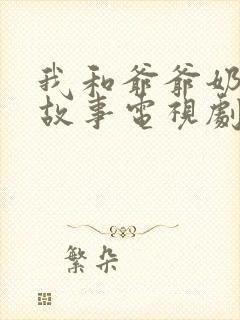 我和爷爷奶
故事電視劇
繁朵